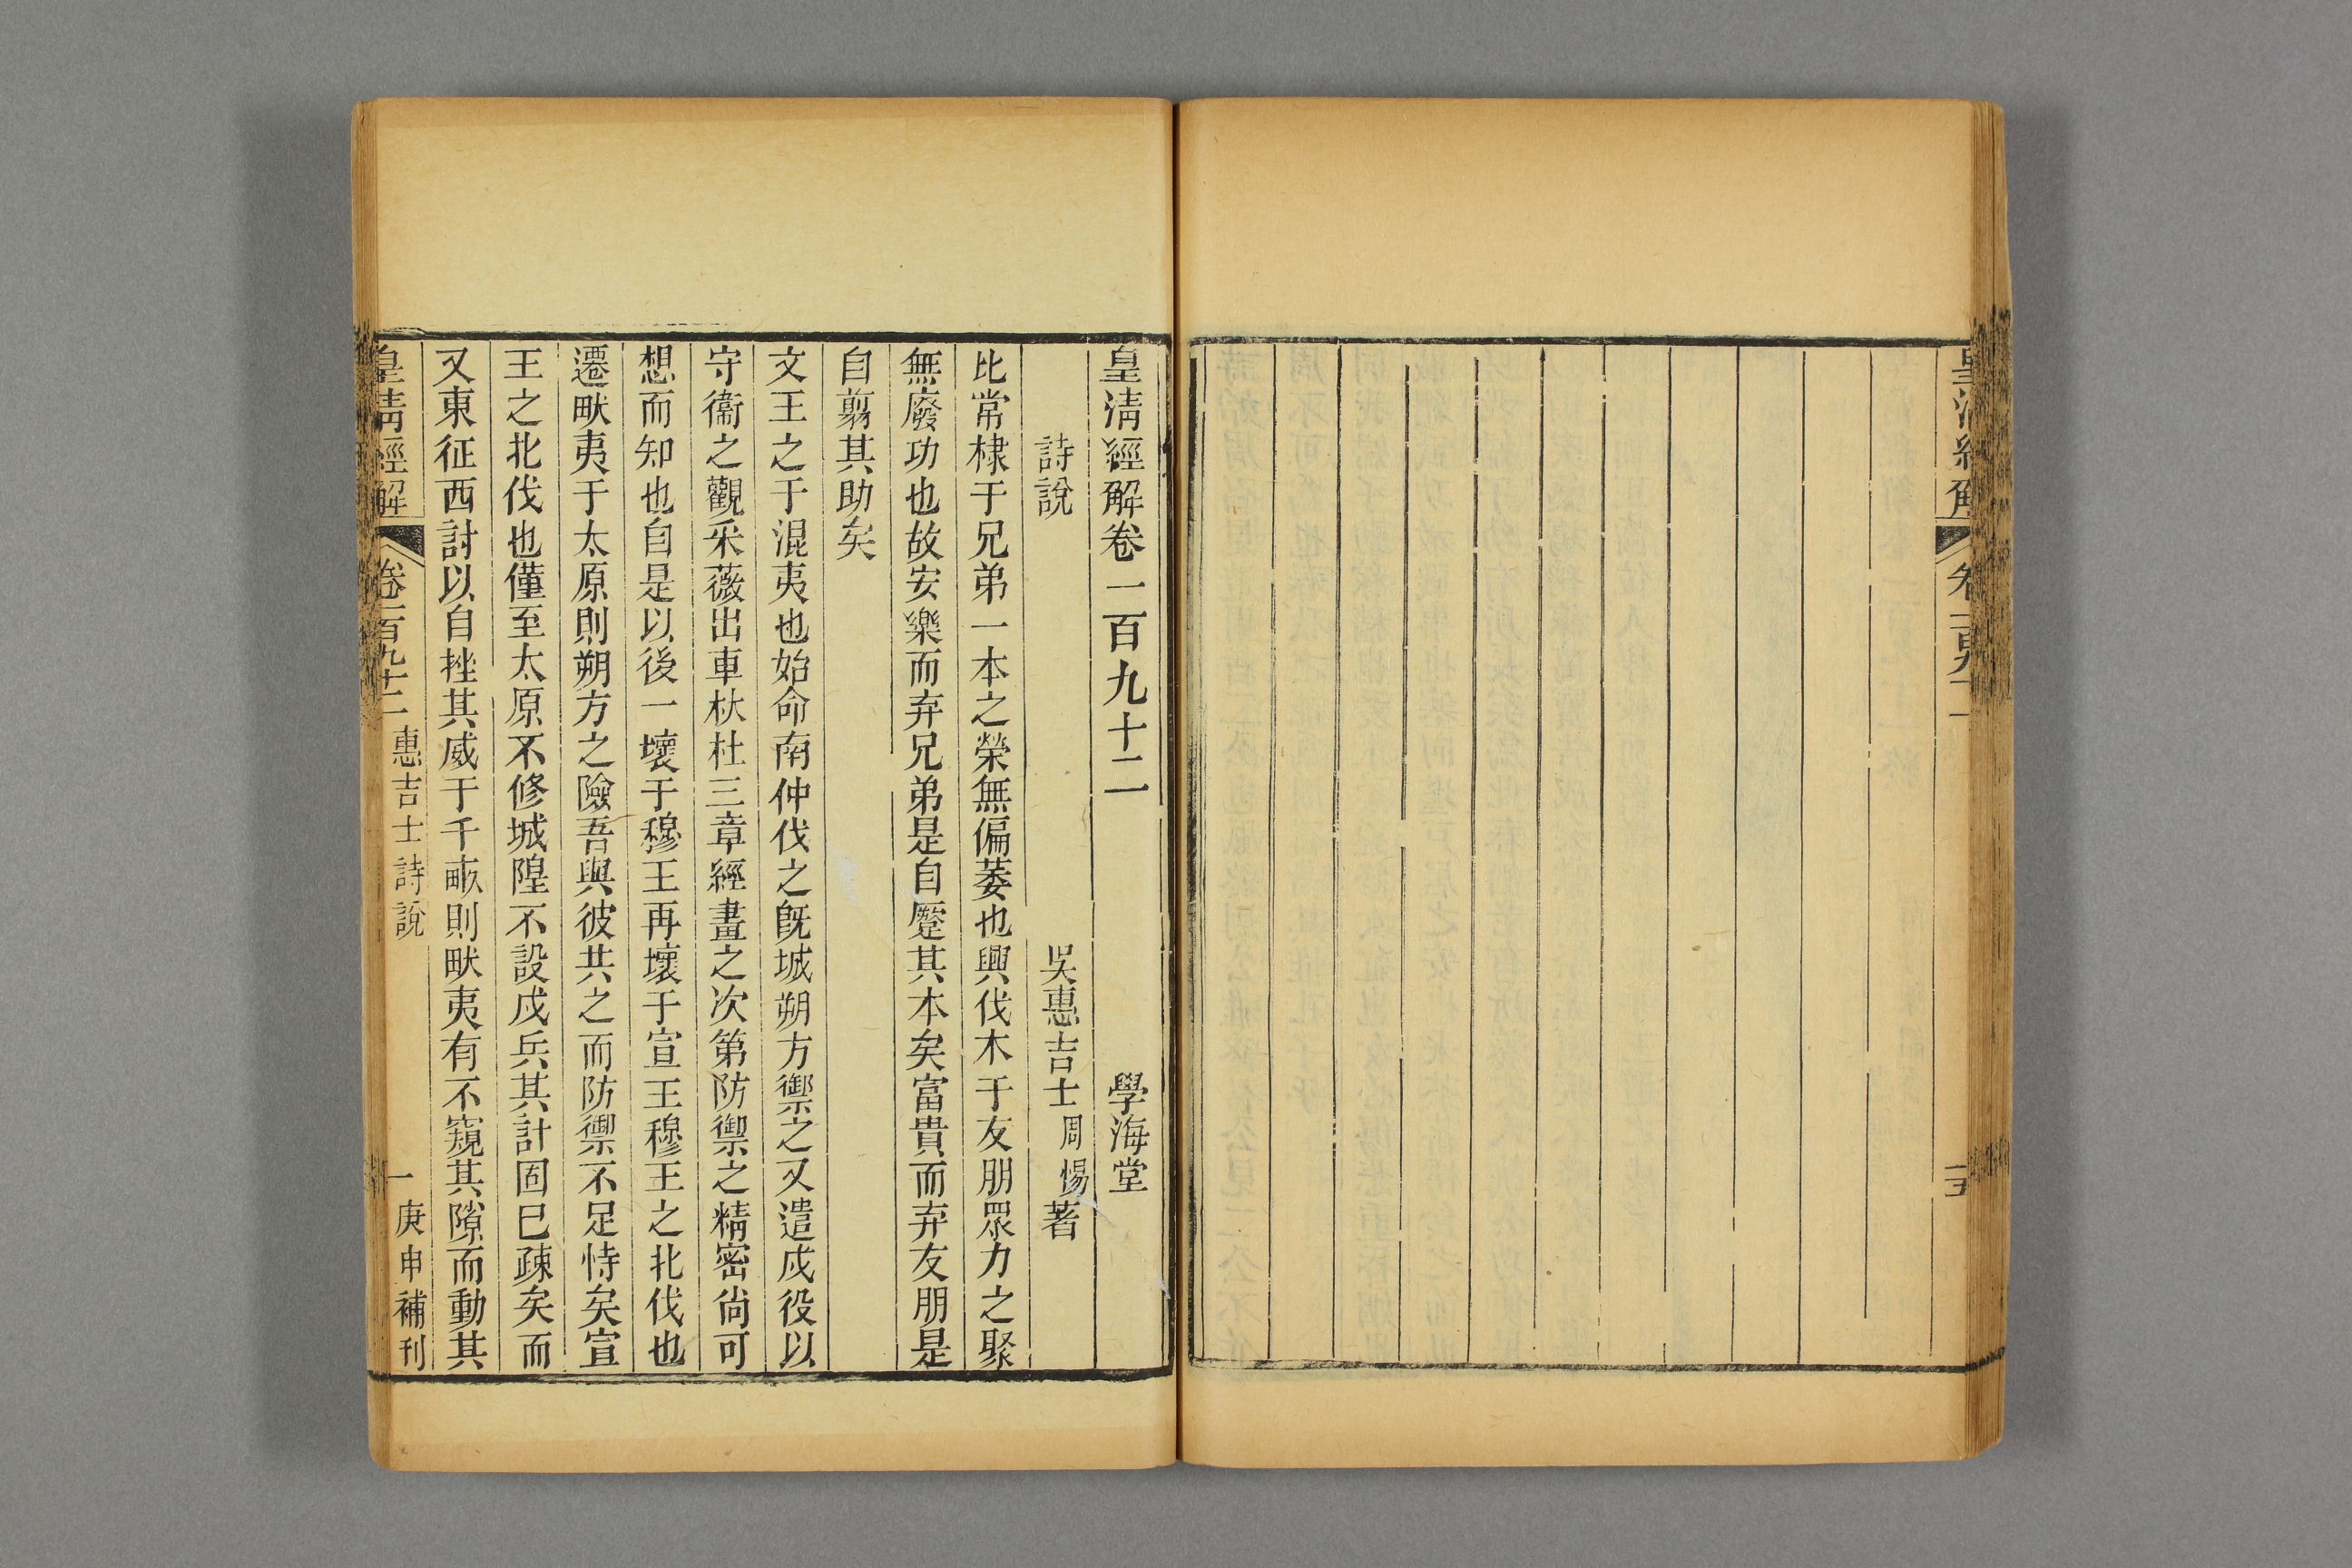 皇清經解卷一百九十二　學海堂
詩說　吳惠吉士周惕著
比常棣于兄弟一本之榮無偏萎也興伐木于友朋眾力之聚
無廢功也故安樂而弃兄弟是自蹷其本矣富貴而弃友朋是
自翦其助矣
文王之于混夷也始命南仲伐之旣城朔方禦之又遣戍役以
守衞之觀采薇出車杕杜三章經畫之次第防禦之精密尙可
想而知也自是以後一壞于穆王再壞于宣王穆王之北伐也
遷畎夷于太原則朔方之險吾與彼共之而防禦不足恃矣宣
王之北伐也僅至太原不修城隍不設戍兵其計固已疎矣而
又東征西討以自挫其威于千畝則畎夷有不窺其隙而動其
皇清經解　卷一百九十二　惠吉士詩說　一　庚申補刊